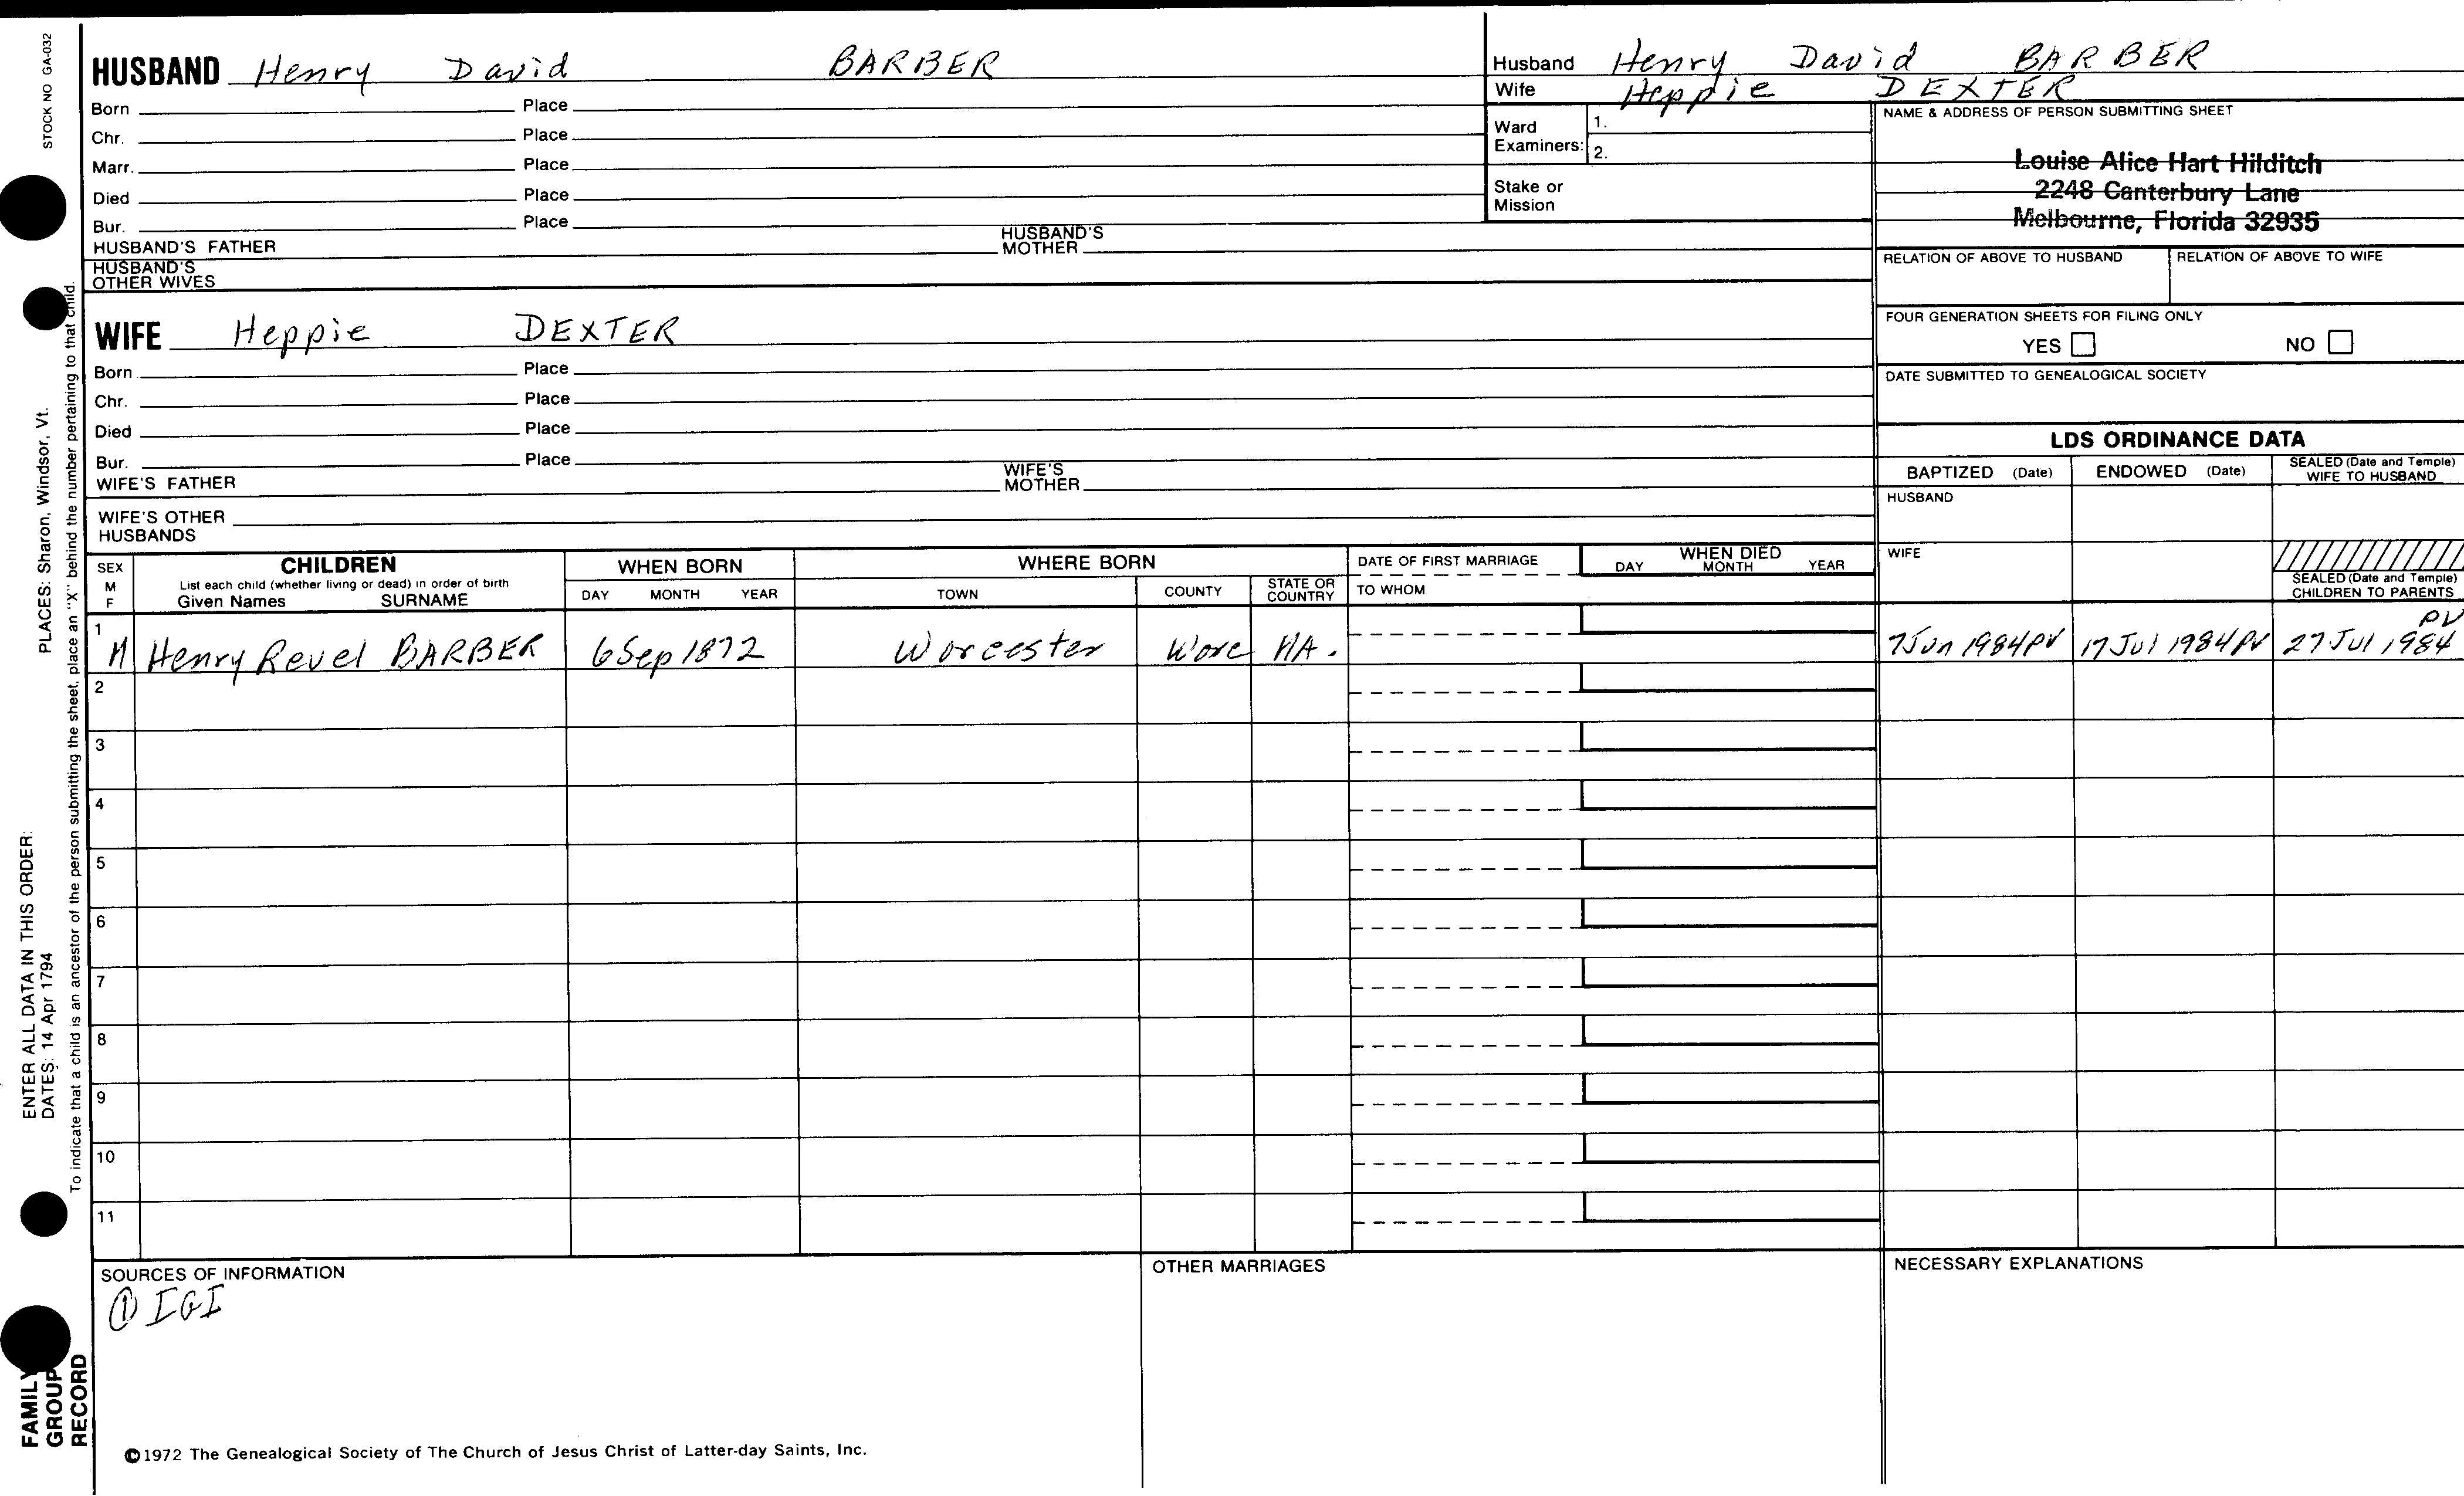 STOCK NO GA-032
HUSBAND Henry David BARBER
Born Place
Chr. Place
Marr. Place
Died Place
Bur. Place
HUSBAND'S FATHER HUSBAND'S MOTHER
HUSBAND'S OTHER WIVES
Husband Henry David BARBER
Wife Heppie DEXTER
Ward Examiners: 1.
2.
Stake or Mission
NAME & ADDRESS OF PERSON SUBMITTING SHEET
Louise Alice Hart Hilditch
2248 Canterbury Lane
Melbourne, Florida 32935
RELATION OF ABOVE TO HUSBAND RELATION OF ABOVE TO WIFE
FOUR GENERATION SHEETS FOR FILING ONLY
YES NO
DATE SUBMITTED TO GENEALOGICAL SOCIETY
WIFE Heppie DEXTER
Born Place
Chr. Place
Died Place
Bur. Place
WIFE'S FATHER WIFE'S MOTHER
WIFE'S OTHER HUSBANDS
LDS ORDINANCE DATA
BAPTIZED (Date) ENDOWED (Date) SEALED (Date and Temple) WIFE TO HUSBAND
HUSBAND
WIFE
SEALED (Date and Temple) CHILDREN TO PARENTS
SEX M F
CHILDREN
List each child (whether living or dead) in order of birth
Given Names SURNAME
WHEN BORN
DAY MONTH YEAR
WHERE BORN
TOWN COUNTY STATE OR COUNTRY
DATE OF FIRST MARRIAGE
TO WHOM
WHEN DIED
DAY MONTH YEAR
1 M Henry Revel BARBER 6 Sep 1872 Worcester Worc MA. 7 Jun 1984 PV 17 Jul 1984 PV 27 Jul 1984 PV
2
3
4
5
6
7
8
9
10
11
SOURCES OF INFORMATION
① IGI
OTHER MARRIAGES
NECESSARY EXPLANATIONS
©1972 The Genealogical Society of The Church of Jesus Christ of Latter-day Saints, Inc.
FAMILY GROUP RECORD
ENTER ALL DATA IN THIS ORDER:
DATES: 14 Apr 1794 PLACES: Sharon, Windsor, Vt.
To indicate that a child is an ancestor of the person submitting the sheet, place an "X" behind the number pertaining to that child.